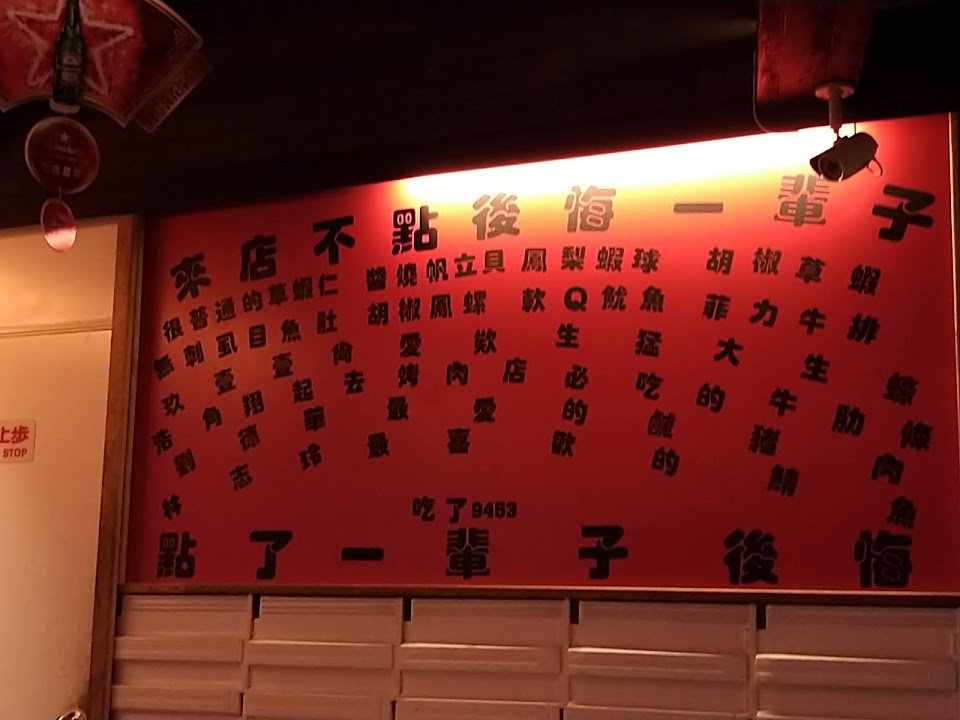 來店不點後悔一輩子
很普通的草蝦仁 醬燒帆立貝 鳳梨蝦球 胡椒草蝦
無刺虱目魚肚 胡椒鳳螺 軟Q魷魚 菲力牛排
玖壹壹尚愛欸生猛大生蠔
浩角翔起去烤肉店必吃的牛肋條
劉德華最愛的鹹豬肉
林志玲最喜歡的鯖魚
吃了9453
點了一輩子後悔
止步
STOP